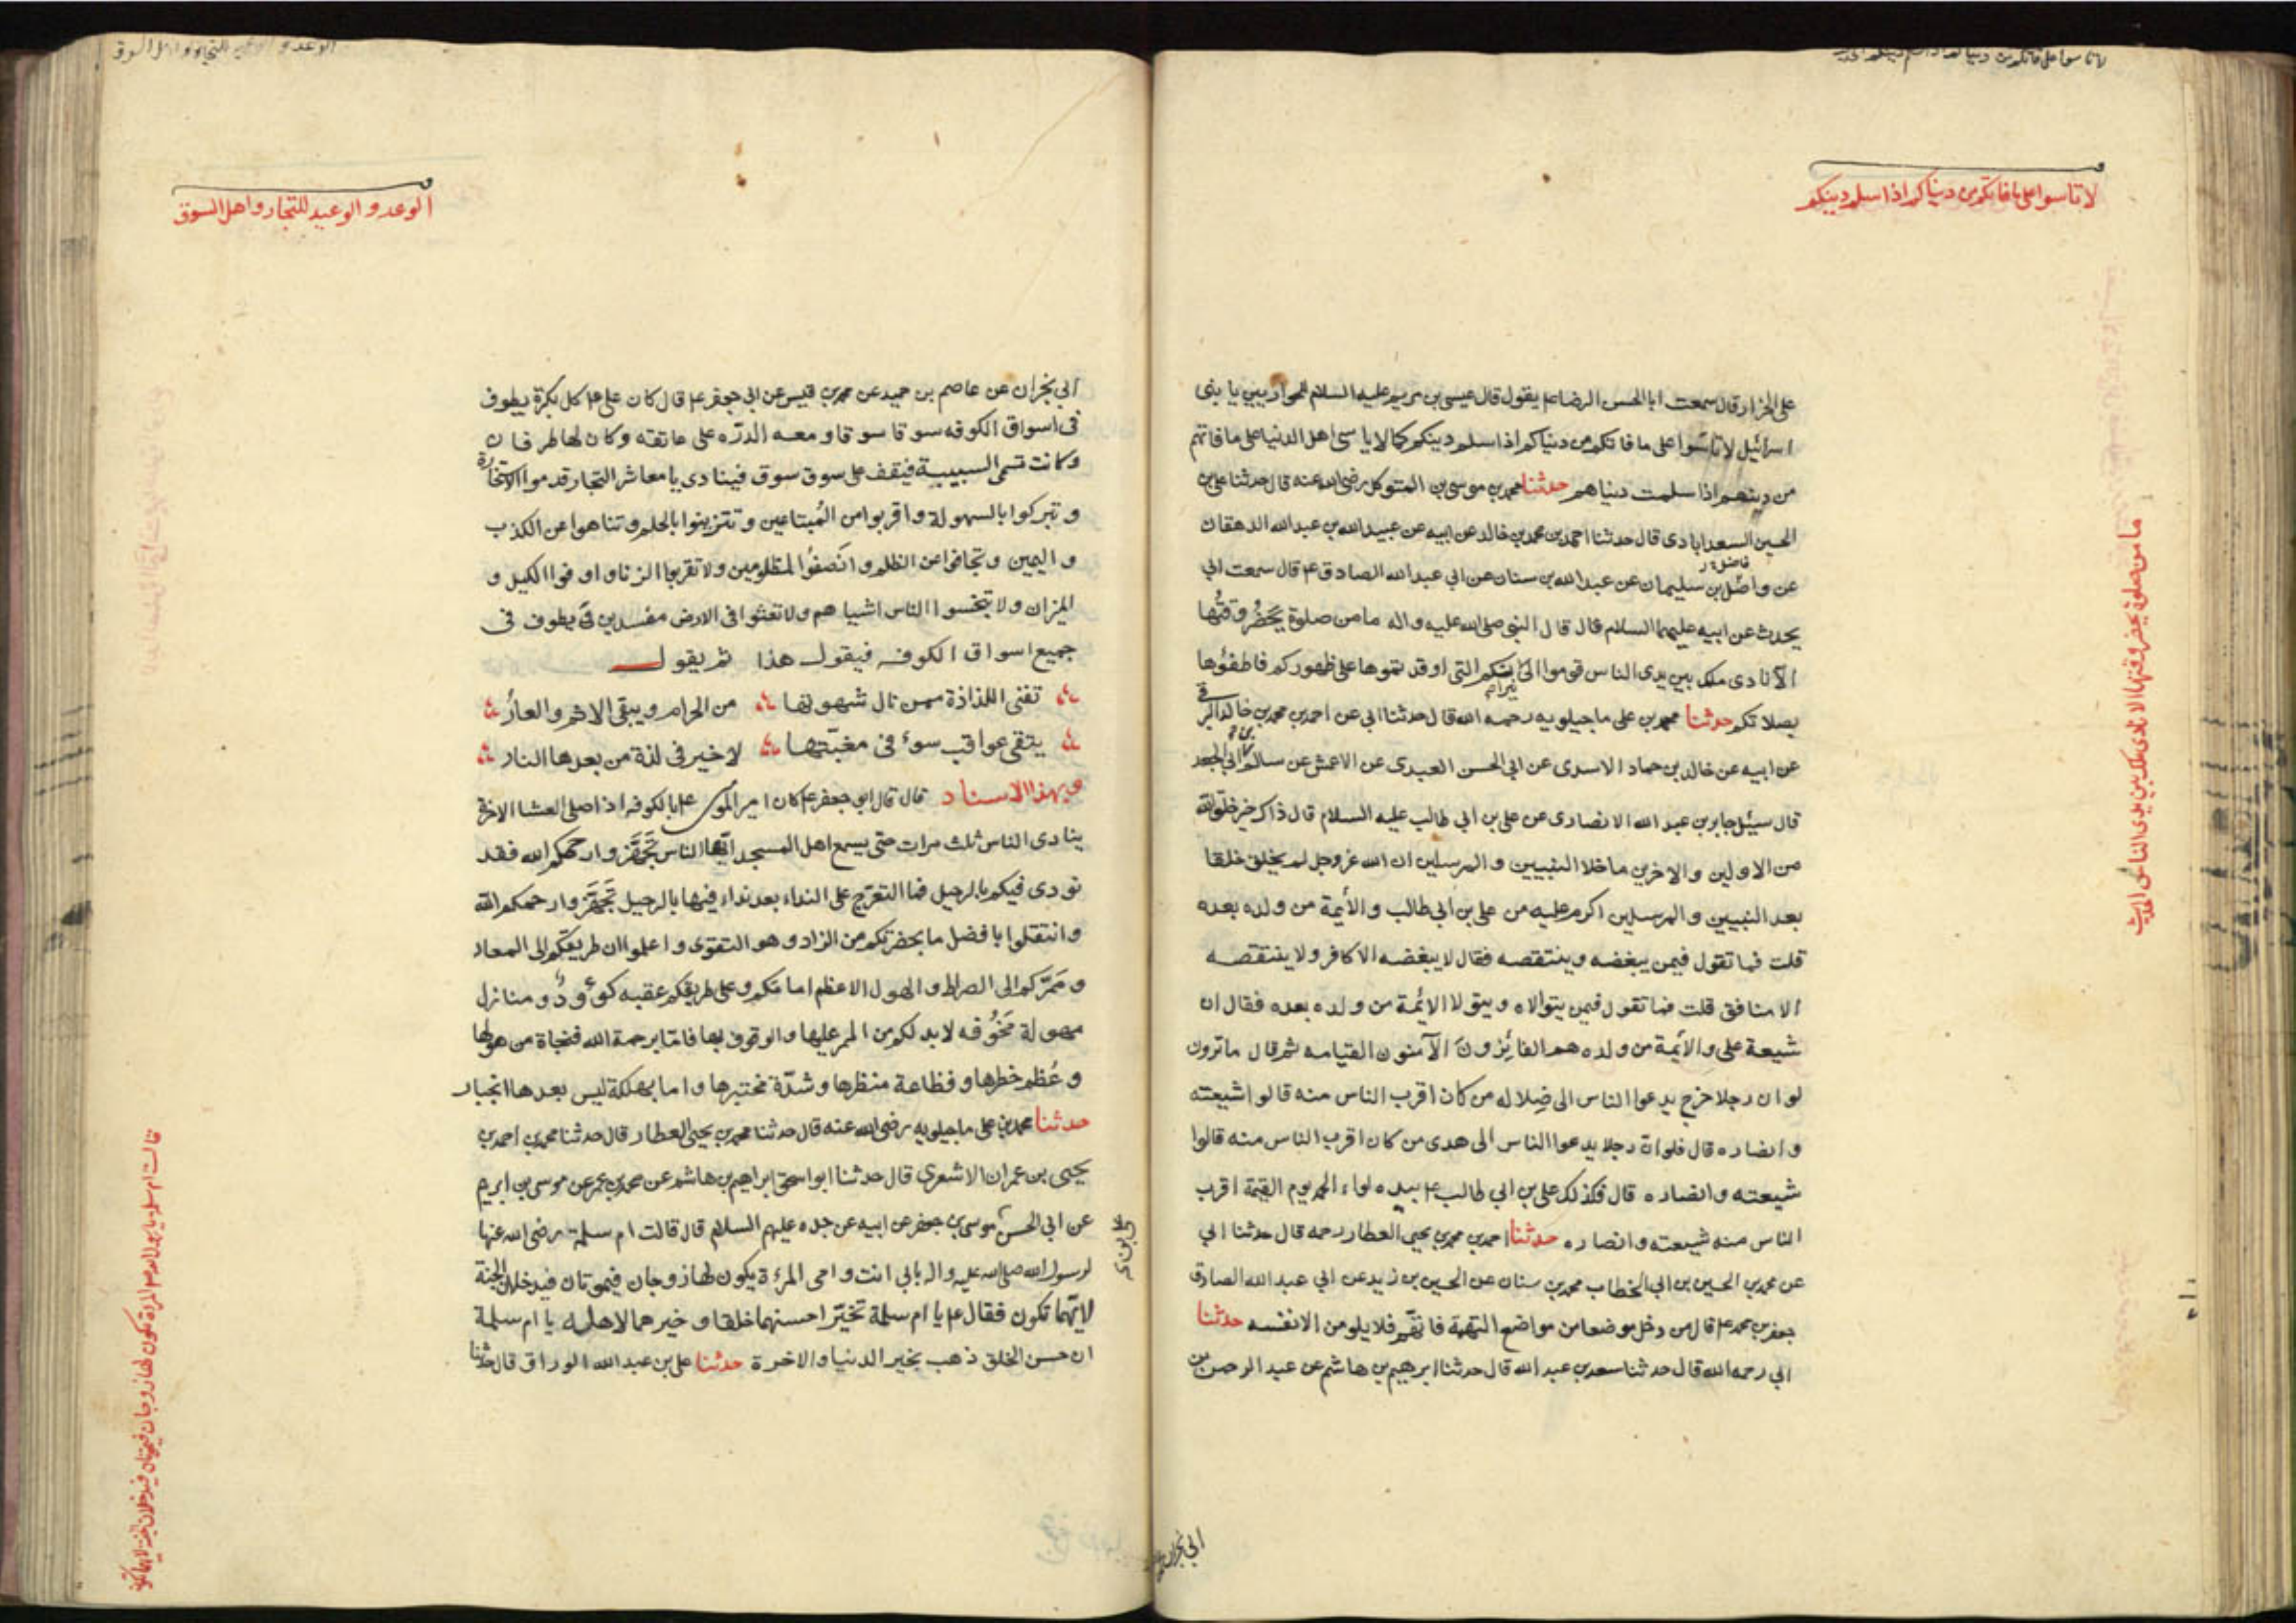 لا تاسوا على ما فاتكم من دنياكم اذا سلم دينكم
على الخزاز قال سمعت ابا الحسن الرضا ع يقول قال عيسى بن مريم عليه السلام للحواريين يا بنى
اسرائيل لا تاسوا على ما فاتكم من دنياكم اذا سلم دينكم كما لا ياسى اهل الدنيا على ما فاتهم
من دينهم اذا سلمت دنياهم حدثنا محمد بن موسى بن المتوكل رضى الله عنه قال حدثنا على بن
الحسين السعدابادى قال حدثنا احمد بن محمد بن خالد عن ابيه عن عبيد الله بن عبد الله الدهقان
عن واصل بن سليمان عن عبد الله بن سنان عن ابي عبد الله الصادق ع قال سمعت ابي
يحدث عن ابيه عليهما السلام قال قال النبى صلى الله عليه واله ما من صلوة يحضُر وقتُها
الا نادى ملك بين يدى الناس قوموا الى نيرانكم التى اوقدتموها على ظهوركم فاطفؤها
بصلاتكم حدثنا محمد بن على ماجيلويه رحمه الله قال حدثنا ابى عن احمد بن محمد بن خالد البرقى
عن ابيه عن خالد بن حماد الاسدى عن ابي الحسن العبدى عن الاعمش عن سالم بن ابي الجعد
قال سئل جابر بن عبد الله الانصارى عن على بن ابي طالب عليه السلام قال ذاك خير خلق الله
من الاولين والاخرين ما خلا النبيين والمرسلين ان الله عز وجل لم يخلق خلقا
بعد النبيين والمرسلين اكرم عليه من على بن ابي طالب والأيمة من ولده بعده
قلت فما تقول فيمن يبغضه وينتقصه فقال لا يبغضه الا كافر ولا ينتقصه
الا منافق قلت فما تقول فيمن يتوالاه ويتولا الائمة من ولده بعده فقال ان
شيعة على والأيمة من ولده هم الفائزون الآمنون القيامه ثم قال ما ترون
لو ان رجلا خرج يدعوا الناس الى ضلاله من كان اقرب الناس منه قالوا شيعته
وانصاره قال فلو ان رجلا يدعوا الناس الى هدى من كان اقرب الناس منه قالوا
شيعته وانصاره قال فكذلك على بن ابي طالب ع بيده لواء الحمد يوم القيمة اقرب
الناس منه شيعته وانصاره حدثنا احمد بن محمد بن يحيى العطار رحمه قال حدثنا ابي
عن محمد بن الحسين بن ابي الخطاب محمد بن سنان عن الحسين بن زيد عن ابي عبد الله الصادق
جعفر بن محمد ع قال من دخل موضعا من مواضع التهمة فاتهم فلا يلومن الا نفسه حدثنا
ابي رحمه الله قال حدثنا سعد بن عبد الله قال حدثنا ابرهيم بن هاشم عن عبد الرحمن بن
ما من صلوة يحضر وقتها الا نادى ملك بين يدى الناس
الوعد والوعيد للتجار واهل السوق
ابي نجران عن عاصم بن حميد عن محمد بن قيس عن ابي جعفر ع قال كان على ع كل بكرة يطوف
فى اسواق الكوفه سوقا سوقا ومعه الدرّه على عاتقه وكان لها طرفان
وكانت تسمى السبيبة فيقف على سوق سوق فينادى يا معاشر التجار قدموا الاستخارة
وتبركوا بالسهولة واقربوا من المُبتاعين وتتزينوا بالحلم وتناهوا عن الكذب
واليمين وتجافوا عن الظلم وانصفُوا المظلومين ولا تقربوا الزنا واوفوا الكيل و
الميزان ولا تبخسوا الناس اشياهم ولا تعثوا فى الارض مفسدين يطوف فى
جميع اسواق الكوفه فيقول هذا ثم يقول
تفنى اللذاذة ممن نال شهوتها من الحرام ويبقى الاثم والعارُ
يتقى عواقب سوء فى مغبّتها لا خير فى لذة من بعدها النار
وبهذا الاسناد قال قال ابو جعفر ع كان امير المؤمنين ع بالكوفه اذا صلى العشا الاخرة
ينادى الناس ثلث مرات حتى يسمع اهل المسجد ايها الناس تجهّزوا رحمكم الله فقد
نودى فيكم بالرحيل فما التعرّج على النداء بعد نداء فيها بالرحيل تجهّزوا رحمكم الله
وانتقلوا بافضل ما بحضرتكم من الزاد وهو التقوى واعلموا ان طريقكم الى المعاد
ومَمرّكم الى الصراط والهول الاعظم امامكم وعلى طريقكم عقبه كوءودٌ ومنازل
مهولة مخوُفه لابد لكم من الممر عليها والوقوف بها فامّا برحمة الله فنجاة من هولها
وعُظم خطرها وفظاعة منظرها وشدّة مختبرها واما بهلكة ليس بعدها انجبار
حدثنا محمد بن على ماجيلويه رضى الله عنه قال حدثنا محمد بن يحيى العطار قال حدثنا محمد بن احمد بن
يحيى بن عمران الاشعري قال حدثنا ابو اسحق ابراهيم بن هاشم عن محمد بن عمر عن موسى بن ابرهيم
عن ابي الحسن موسى بن جعفر عن ابيه عن جده عليهم السلام قال قالت ام سلمة رضى الله عنها
لرسول الله صلى الله عليه واله بابي انت وامى المرءة يكون لها زوجان فيموتان فيدخلان الجنة
لايّهما تكون فقال ع يا ام سلمة تخيّر احسنهما خلقا وخيرهما لاهله يا ام سلمة
ان حسن الخلق ذهب بخير الدنيا والاخرة حدثنا على بن عبد الله الوراق قال حدثنا
ابي نجران